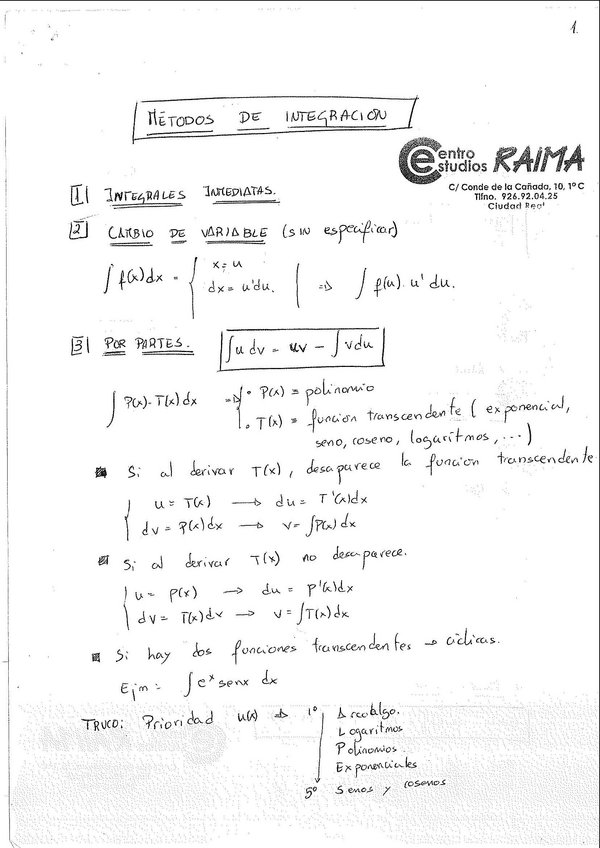 1.
MÉTODOS DE INTEGRACION
Centro
Estudios RAIMA
C/ Conde de la Cañada, 10, 1º C
Tlfno. 926.92.04.25
Ciudad Real
1 INTEGRALES INMEDIATAS.
2 CAMBIO DE VARIABLE (sin especificar)
∫ f(x)dx = { x = u
dx = u'du. | => ∫ f(u). u' du.
3 POR PARTES. ∫u dv = uv - ∫vdu
∫ P(x)·T(x)dx => { • P(x) ≡ polinomio
• T(x) ≡ función transcendente (exponencial,
seno, coseno, logaritmos, ...)
Si al derivar T(x), desaparece la funcion transcendente
{ u = T(x) → du = T'(x)dx
dv = P(x)dx → v = ∫P(x)dx
Si al derivar T(x) no desaparece.
{ u = P(x) → du = P'(x)dx
dv = T(x)dx → v = ∫T(x)dx
Si hay dos funciones transcendentes → cíclicas.
Ejm: ∫e^x senx dx
TRUCO: Prioridad u(x) => 1º Arcoalgo.
Logaritmos
Polinomios.
Exponenciales
5º Senos y cosenos